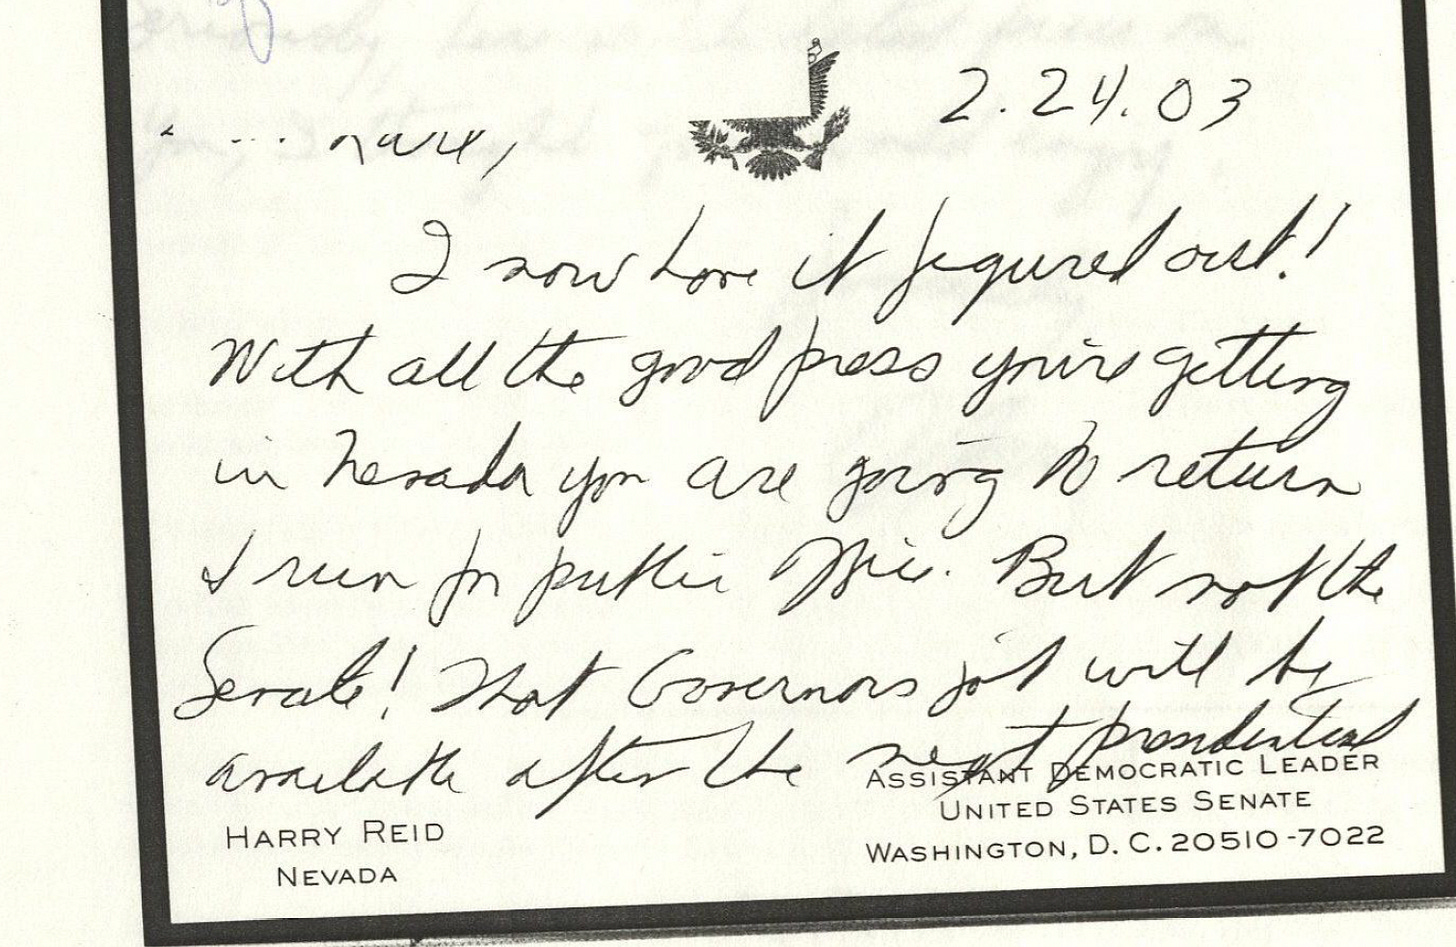 2.24.03
I now have it figured out!
With all the good press you're getting
in Nevada you are going to return
& run for public office. But not the
Senate! That Governors job will be
available after the next presidential
ASSISTANT DEMOCRATIC LEADER
UNITED STATES SENATE
WASHINGTON, D. C. 20510-7022
HARRY REID
NEVADA